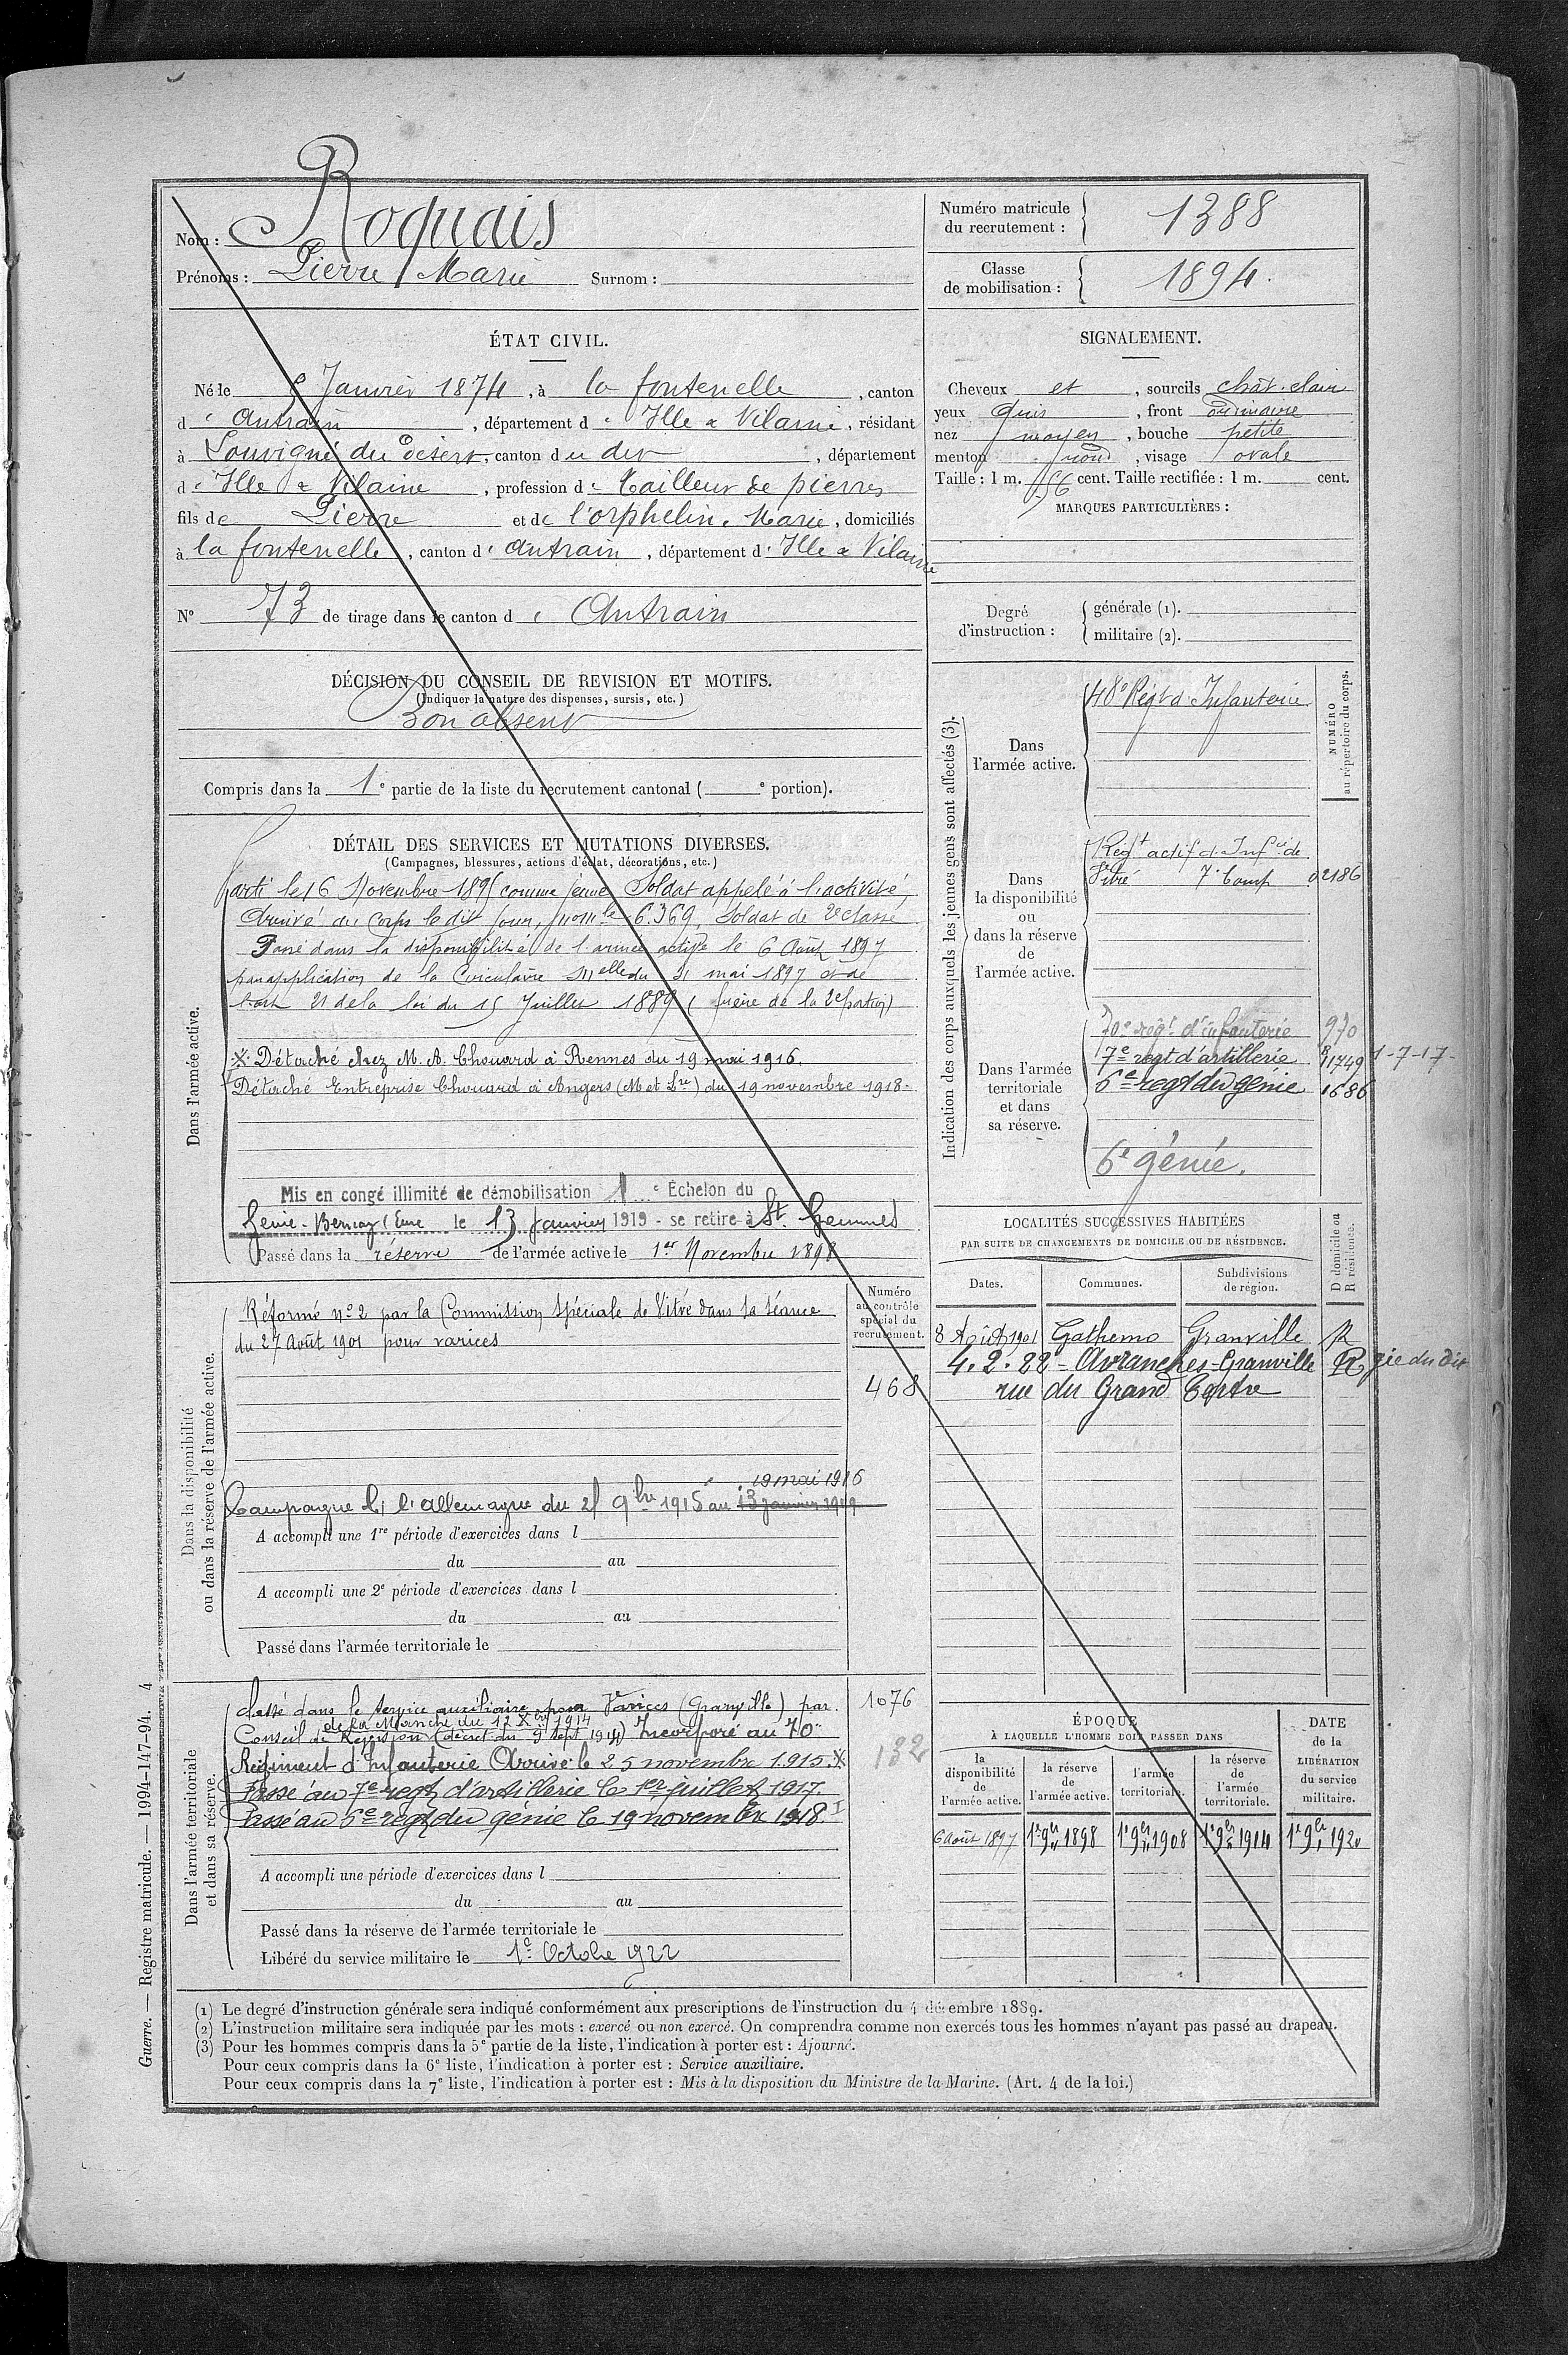 Nom : Roquais
Prénoms : Pierre Marie Surnom :
Numéro matricule du recrutement : 1388
Classe de mobilisation : 1894.
ÉTAT CIVIL.
Né le 5 Janvier 1874, à la fontenelle, canton
d'Antrain, département d'Ille & Vilaine, résidant
à Louvigné du Désert, canton du dit, département
d'Ille & Vilaine, profession de Tailleur de pierres
fils de Pierre et de l'orphelin Marie, domiciliés
à la fontenelle, canton d'Antrain, département d'Ille & Vilaine
N° 73 de tirage dans le canton d'Antrain
SIGNALEMENT.
Cheveux et, sourcils chât. clair
yeux Gris, front ordinaire
nez moyen, bouche petite
menton rond, visage ovale
Taille : 1 m. 56 cent. Taille rectifiée : 1 m. cent.
MARQUES PARTICULIÈRES :
Degré d'instruction : générale (1).
militaire (2).
DÉCISION DU CONSEIL DE REVISION ET MOTIFS.
(Indiquer la nature des dispenses, sursis, etc.)
Bon absent
Compris dans la 1e partie de la liste du recrutement cantonal ( e portion).
DÉTAIL DES SERVICES ET MUTATIONS DIVERSES.
(Campagnes, blessures, actions d'éclat, décorations, etc.)
Dans l'armée active.
Parti le 16 Novembre 1895 comme jeune Soldat appelé à l'activité
Arrivé au Corps le dit jour, no mle 6.369, Soldat de 2e classe
Passé dans la disponibilité de l'armée active le 6 Août 1897
par application de la Circulaire Mlle du 31 mai 1897 et de
l'art 21 de la loi du 15 Juillet 1889 (frère de la 2e portion)
※ Détaché chez M. A. Chouard à Rennes du 19 mai 1916.
Détaché Entreprise Chouard à Angers (M et Lre) du 19 novembre 1918.
Mis en congé illimité de démobilisation 1e Échelon du
Génie - Bernay (Eure le 13 Janvier 1919 - se retire à St. Gemmes
Passé dans la réserve de l'armée active le 1er Novembre 1898
Indication des corps auxquels les jeunes gens sont affectés (3).
NUMÉRO au répertoire du corps.
Dans l'armée active.
48e Régt d'Infanterie
Dans la disponibilité ou dans la réserve de l'armée active.
Regt actif d'Infie de
Vitré 7e Comp 02186
Dans l'armée territoriale et dans sa réserve.
70e régt d'infanterie 970
7e regt d'artillerie 11749 1-7-17-
6e regt du génie 1686
6e génie.
LOCALITÉS SUCCESSIVES HABITÉES
PAR SUITE DE CHANGEMENTS DE DOMICILE OU DE RÉSIDENCE.
Dates. Communes. Subdivisions de région. D domicile ou R résidence.
8 Août 1901 Gathemo Granville R
4.2.22 - Avranches - Granville R gie du dit
rue du Grand Tertre
Dans la disponibilité ou dans la réserve de l'armée active.
Numéro au contrôle spécial du recrutement.
Réformé no 2 par la Commission spéciale de Vitré dans sa séance
du 27 Août 1901 pour varices
468
19 mai 1916
Campagne c/ l'allemagne du 25 9bre 1915 au 13 janvier 1919
A accompli une 1re période d'exercices dans l
du au
A accompli une 2e période d'exercices dans l
du au
Passé dans l'armée territoriale le
Dans l'armée territoriale et dans sa réserve.
Classé dans le service auxiliaire pour Varices (Granville) par
1076
de la Manche du 12 Xbre 1914
Conseil de Révision (décret du 9 Sept 1914) Incorporé au 70e
132
Régiment d'Infanterie Arrivé le 25 novembre 1915. ※
Passé au 7e regt d'artillerie le 1er juillet 1917.
Passé au 6e regt du génie le 19 novembre 1918.
A accompli une période d'exercices dans l
du au
Passé dans la réserve de l'armée territoriale le
Libéré du service militaire le 1er Octobre 1922
ÉPOQUE
À LAQUELLE L'HOMME DOIT PASSER DANS
la disponibilité de l'armée active. la réserve de l'armée active. l'armée territoriale. la réserve de l'armée territoriale.
DATE de la LIBÉRATION du service militaire.
6 août 1897 1er 9bre 1898 1er 9bre 1908 1er 9bre 1914 1er 9bre 1920
(1) Le degré d'instruction générale sera indiqué conformément aux prescriptions de l'instruction du 4 décembre 1889.
(2) L'instruction militaire sera indiquée par les mots : exercé ou non exercé. On comprendra comme non exercés tous les hommes n'ayant pas passé au drapeau.
(3) Pour les hommes compris dans la 5e partie de la liste, l'indication à porter est : Ajourné.
Pour ceux compris dans la 6e liste, l'indication à porter est : Service auxiliaire.
Pour ceux compris dans la 7e liste, l'indication à porter est : Mis à la disposition du Ministre de la Marine. (Art. 4 de la loi.)
Guerre. — Registre matricule. — 1994-147-94. 4